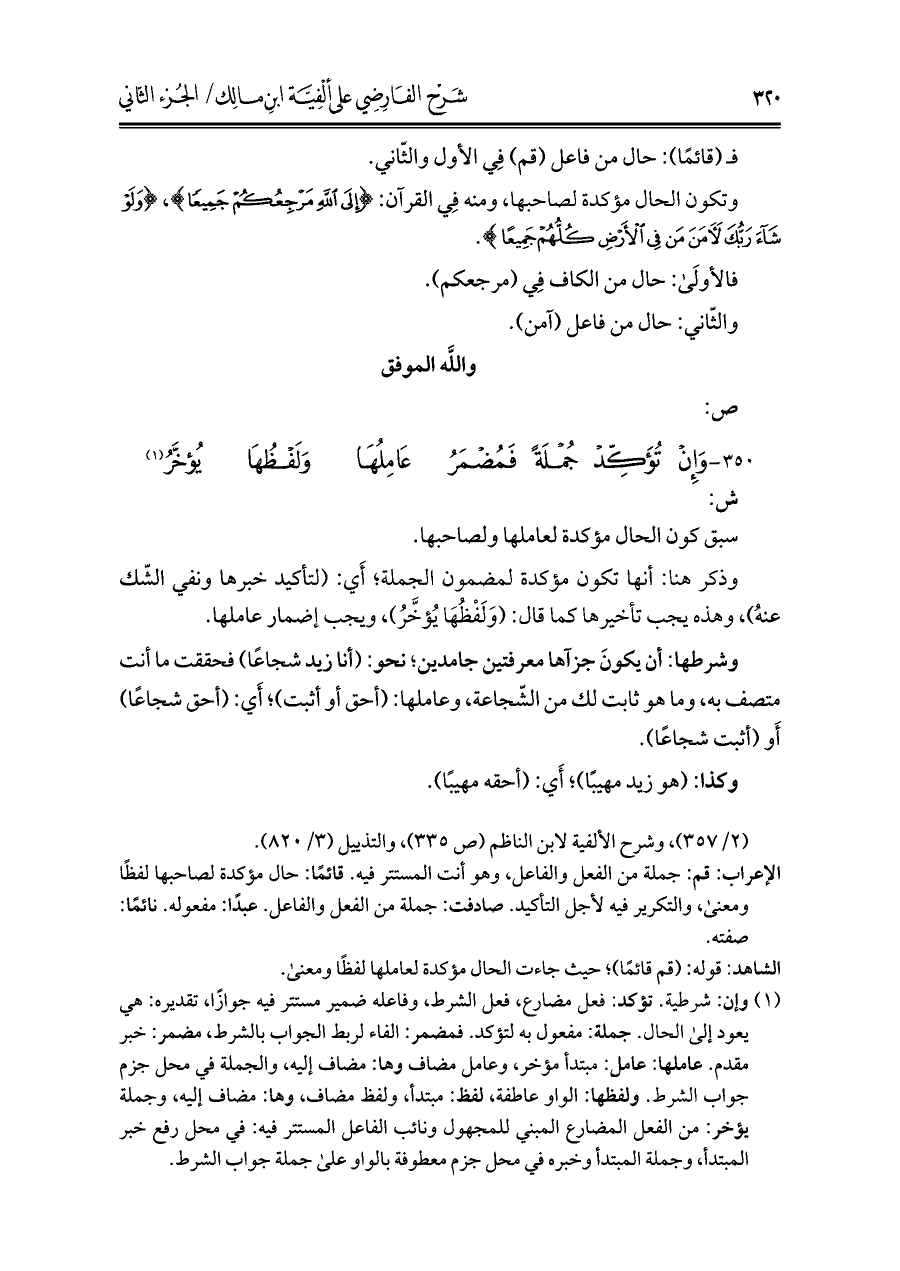 ٣٢٠ شَرْح الفَارِضِي عَلى أَلْفِيَّة ابنِ مالِك/ الجُزء الثاني
فـ (قائمًا): حال من فاعل (قم) فِي الأول والثّاني.
وتكون الحال مؤكدة لصاحبها، ومنه فِي القرآن: ﴿إِلَى ٱللَّهِ مَرۡجِعُكُمۡ جَمِيعٗا﴾، ﴿وَلَوۡ
شَآءَ رَبُّكَ لَأٓمَنَ مَن فِي ٱلۡأَرۡضِ كُلُّهُمۡ جَمِيعًا﴾.
فالأولَىٰ: حال من الكاف فِي (مرجعكم).
والثّاني: حال من فاعل (آمن).
واللَّه الموفق
ص:
٣٥٠-وَإِنْ تُؤَكِّدْ جُمْلَةً فَمُضْمَرُ عَامِلُهَا وَلَفْظُهَا يُؤَخَّرُ(١)
ش:
سبق كون الحال مؤكدة لعاملها ولصاحبها.
وذكر هنا: أنها تكون مؤكدة لمضمون الجملة؛ أَي: (لتأكيد خبرها ونفي الشّك
عنهُ)، وهذه يجب تأخيرها كما قال: (وَلَفْظُهَا يُؤَخَّرُ)، ويجب إضمار عاملها.
وشرطها: أن يكونَ جزآها معرفتين جامدين؛ نحو: (أنا زيد شجاعًا) فحققت ما أنت
متصف به، وما هو ثابت لك من الشّجاعة، وعاملها: (أحق أو أثبت)؛ أَي: (أحق شجاعًا)
أَو (أثبت شجاعًا).
وكذا: (هو زيد مهيبًا)؛ أَي: (أحقه مهيبًا).
(٢/ ٣٥٧)، وشرح الألفية لابن الناظم (ص ٣٣٥)، والتذييل (٣/ ٨٢٠).
الإعراب: قم: جملة من الفعل والفاعل، وهو أنت المستتر فيه. قائمًا: حال مؤكدة لصاحبها لفظًا
ومعنىٰ، والتكرير فيه لأجل التأكيد. صادفت: جملة من الفعل والفاعل. عبدًا: مفعوله. نائمًا:
صفته.
الشاهد: قوله: (قم قائمًا)؛ حيث جاءت الحال مؤكدة لعاملها لفظًا ومعنىٰ.
(١) وإن: شرطية. تؤكد: فعل مضارع، فعل الشرط، وفاعله ضمير مستتر فيه جوازًا، تقديره: هي
يعود إلىٰ الحال. جملة: مفعول به لتؤكد. فمضمر: الفاء لربط الجواب بالشرط، مضمر: خبر
مقدم. عاملها: عامل: مبتدأ مؤخر، وعامل مضاف وها: مضاف إليه، والجملة في محل جزم
جواب الشرط. ولفظها: الواو عاطفة، لفظ: مبتدأ، ولفظ مضاف، وها: مضاف إليه، وجملة
يؤخر: من الفعل المضارع المبني للمجهول ونائب الفاعل المستتر فيه: في محل رفع خبر
المبتدأ، وجملة المبتدأ وخبره في محل جزم معطوفة بالواو علىٰ جملة جواب الشرط.